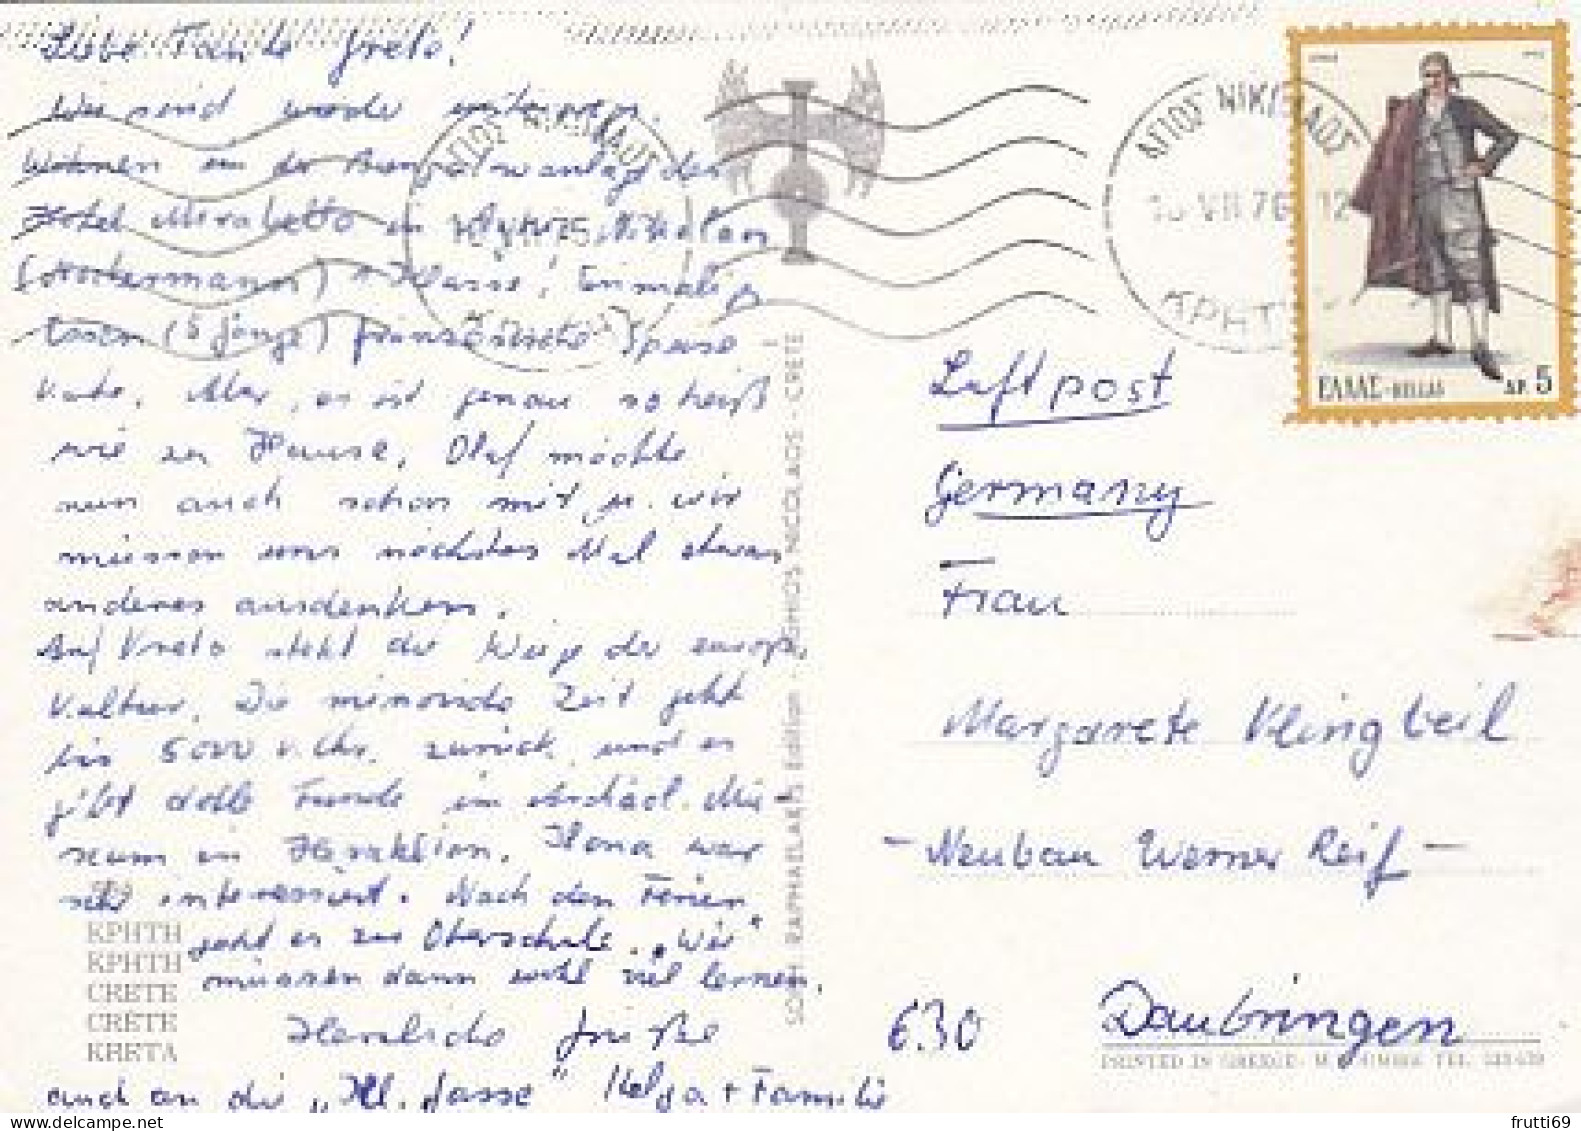 Liebe Tante Grete!
Wir sind wieder unterwegs.
Wohnen in der Bungalowanlage des
Hotel Mirabello in Agios Nikolaos
(Neckermann) Klasse! Einmalig
(5 Gänge) französische Speise
Aber, es ist genau so heiß
wie zu Hause. Olaf möchte
nun auch schon mit u. wir
müssen uns nächstes Mal etwas
anderes ausdenken.
Auf Kreta steht die Wiege der europ.
Kultur. Die minoische Zeit geht
bis 5000 v. Chr. zurück und es
gibt dolle Funde im Archäol. Mu-
seum in Heraklion. Ilona war
sehr interessiert. Nach den Ferien
geht es zur Oberschule. „Wir"
müssen dann wohl viel lernen.
Herzliche Grüße
auch an die „Kl. Gasse" Helga + Familie
ΚΡΗΤΗ
ΚΡΗΤΗ
CRETE
CRÈTE
KRETA
SOPH. RAPHAELAKIS Edition - AGHIOS NICOLAOS - CRETE
ΑΓΙΟΣ ΝΙΚΟΛΑΟΣ
VII 76 12
ΚΡΗΤΗΣ
ΕΛΛΑΣ-HELLAS ΔΡ. 5
Luftpost
Germany
Frau
Margarete Klingbeil
- Neubau Werner Reif -
630 Daubringen
PRINTED IN GREECE
frutti69